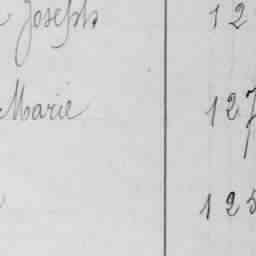 Joseph 12
Marie 127
125